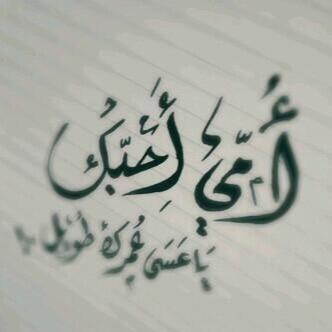 أُمّي أُحِبّكِ
يَا عَسَى عُمرك طُويل